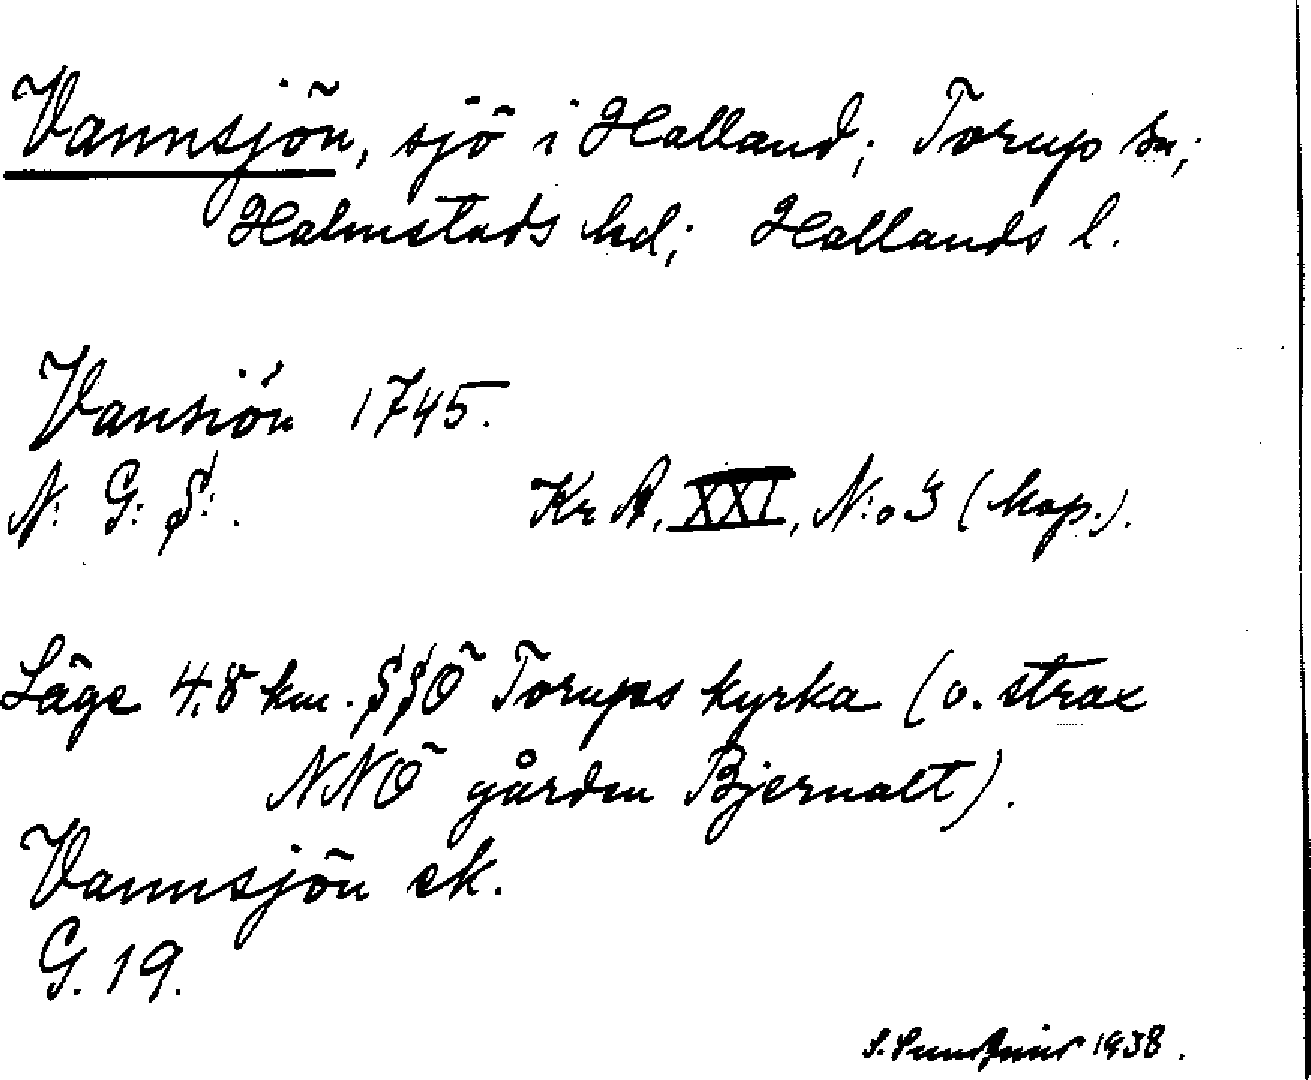 Vannsjön, sjö i Halland; Torup sn;
Halmstads hd; Hallands l.
Vansiön 1745.
N: G: S: . Kr A. XXI, N:o 3 (kop.).
Läge 4,8 km. SSÖ Torups kyrka (o. strax
NNÖ gården Bjernalt).
Vannsjön ek.
G. 19.
1938.